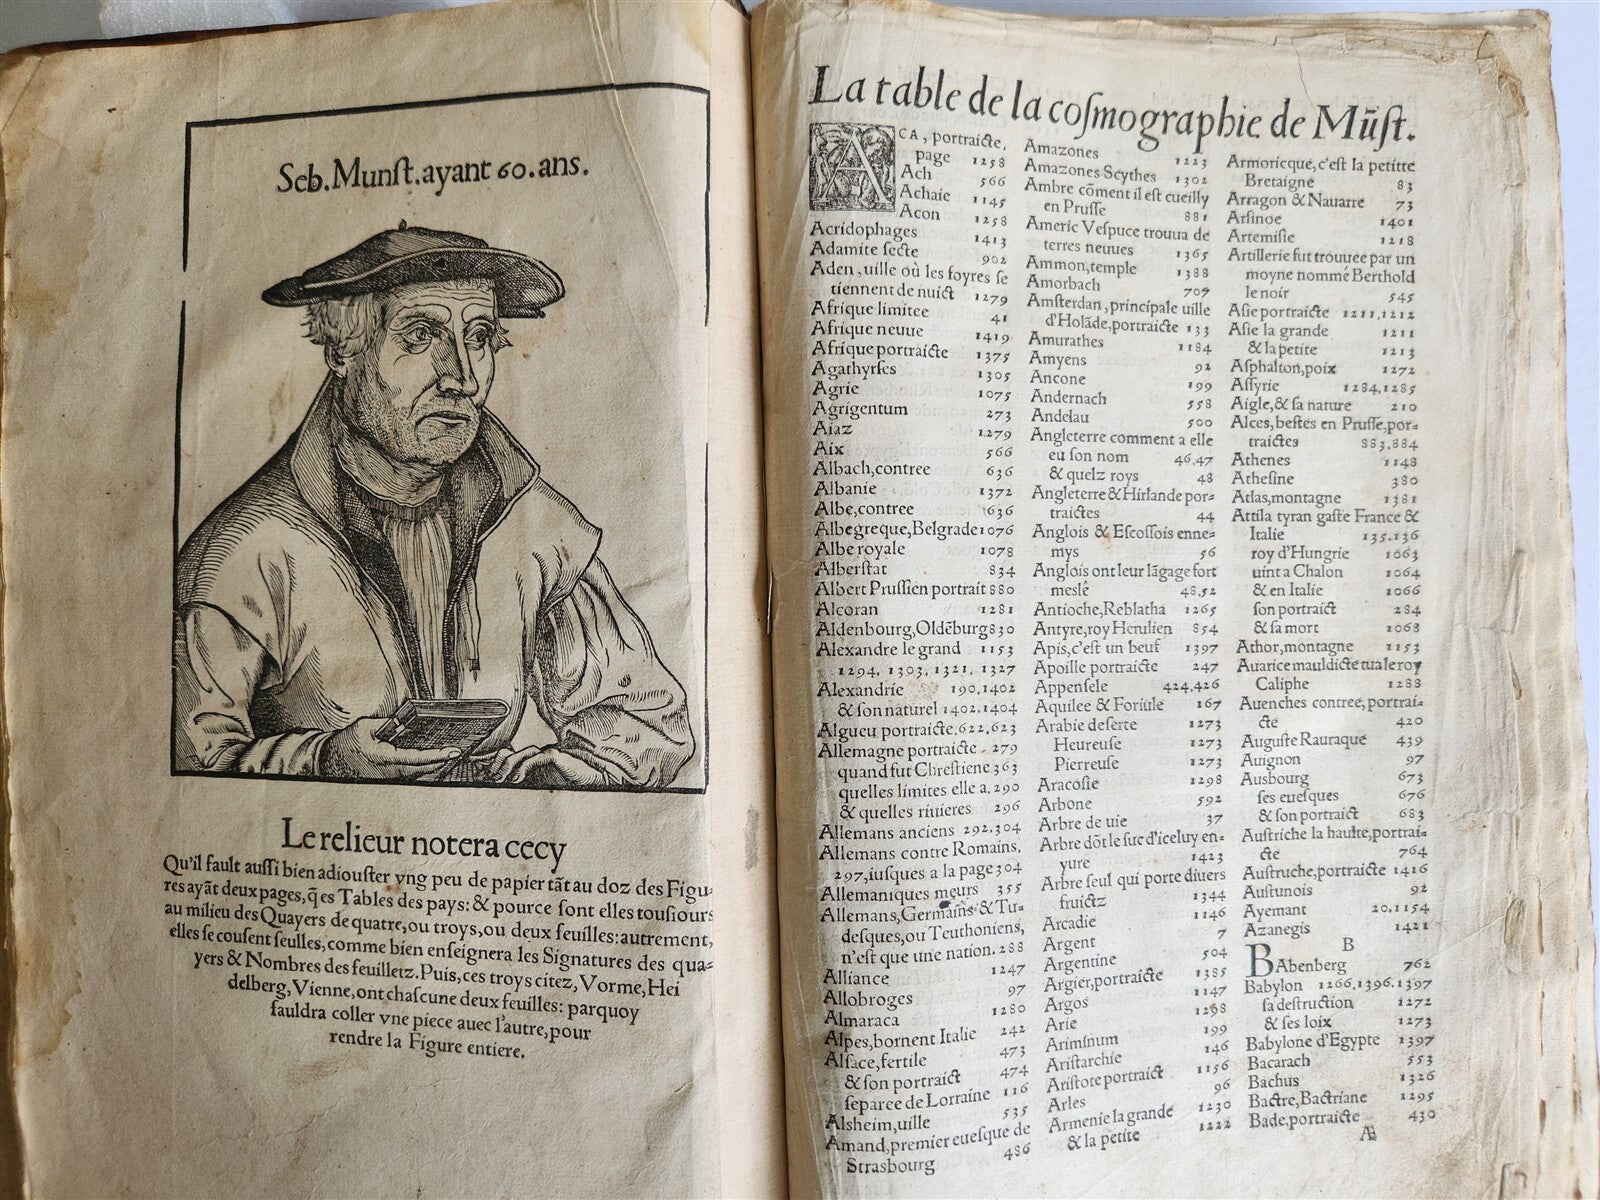 Seb. Munſt. ayant 60. ans.
Le relieur notera cecy
Qu'il fault auſſi bien adiouſter vng peu de papier tãt au doz des Figu-
res ayãt deux pages, q̃ es Tables des pays: & pource ſont elles touſiours
au milieu des Quayers de quatre, ou troys, ou deux feuilles: autrement,
elles ſe couſent ſeulles, comme bien enſeignera les Signatures des qua-
yers & Nombres des feuilletz. Puis, ces troys citez, Vorme, Hei
delberg, Vienne, ont chaſcune deux feuilles: parquoy
fauldra coller vne piece auec l'autre, pour
rendre la Figure entiere.
La table de la coſmographie de Mũſt.
ACA, portraicte,
page 1258
Ach 566
Achaie 1145
Acon 1258
Acridophages 1413
Adamite ſecte 902
Aden, uille où les foyres ſe
tiennent de nuict 1279
Afrique limitee 41
Afrique neuue 1419
Afrique portraicte 1375
Agathyrſes 1305
Agrie 1075
Agrigentum 273
Aiaz 1279
Aix 566
Albach, contree 636
Albanie 1372
Albe, contree 636
Albegreque, Belgrade 1076
Albe royale 1078
Alberſtat 834
Albert Pruſſien portrait 880
Alcoran 1281
Aldenbourg, Oldẽburg 830
Alexandre le grand 1153
1294, 1303, 1321, 1327
Alexandrie 190.1402
& ſon naturel 1402.1404
Algueu portraicte. 622.623
Allemagne portraicte 279
quand fut Chreſtiene 363
quelles limites elle a. 290
& quelles riuieres 296
Allemans anciens 292.304
Allemans contre Romains.
297, iuſques a la page 304
Allemaniques meurs 355
Allemans, Germains & Tu-
deſques, ou Teuthoniens,
n'eſt que une nation. 288
Alliance 1247
Allobroges 97
Almaraca 1280
Alpes, bornent Italie 242
Alſace, fertile 473
& ſon portraict 474
ſeparee de Lorraine 116
Alsheim, uille 535
Amand, premier eueſque de
Strasbourg 486
Amazones 1223
Amazones Scythes 1302
Ambre cõment il est cueilly
en Pruſſe 881
Americ Veſpuce trouua de
terres neuues 1365
Ammon, temple 1388
Amorbach 707
Amſterdan, principale uille
d'Holãde, portraicte 133
Amurathes 1184
Amyens 92
Ancone 199
Andernach 558
Andelau 500
Angleterre comment a elle
eu ſon nom 46.47
& quelz roys 48
Angleterre & Hirlande por-
traictes 44
Anglois & Eſcoſſois enne-
mys 56
Anglois ont leur lãgage fort
meslé 48.52
Antioche, Reblatha 1265
Antyre, roy Herulien 854
Apis, c'eſt un beuf 1397
Apoille portraicte 247
Appenſele 424.426
Aquilee & Foriule 167
Arabie deſerte 1273
Heureuſe 1273
Pierreuſe 1273
Aracoſie 1298
Arbone 592
Arbre de uie 37
Arbre dõt le ſuc d'iceluy en-
yure 1423
Arbre ſeul qui porte diuers
fruictz 1344
Arcadie 1146
Argent 7
Argentine 504
Argier, portraicte 1385
Argos 1147
Arie 1298
Ariminum 199
Ariſtarchie 146
Ariſtote portraict 1156
Arles 96
Armenie la grande 1230
& la petite 1222
Armoricque, c'est la petitte
Bretaigne 83
Arragon & Nauarre 73
Arſinoe 1401
Artemiſie 1218
Artillerie fut trouuee par un
moyne nommé Berthold
le noir 545
Aſie portraicte 1211,1212
Aſie la grande 1211
& la petite 1213
Aſphalton, poix 1272
Aſſyrie 1284.1285
Aigle, & ſa nature 210
Alces, beſtes en Pruſſe, por-
traictes 883.884
Athenes 1148
Atheſine 380
Atlas, montagne 1381
Attila tyran gaſte France &
Italie 135.136
roy d'Hungrie 1063
uint a Chalon 1064
& en Italie 1066
ſon portraict 284
& ſa mort 1068
Athor, montagne 1153
Auarice mauldicte tua le roy
Caliphe 1288
Auenches contree, portrai-
cte 420
Auguſte Rauraque 439
Auignon 97
Ausbourg 673
ſes eueſques 676
& ſon portraict 683
Auſtriche la haulte, portrai-
cte 764
Auſtruche, portraicte 1416
Auſtunois 92
Ayemant 20.1154
Azanegis 1421
B
BAbenberg 762
Babylon 1266.1396.1397
ſa destruction 1272
& ſes loix 1273
Babylone d'Egypte 1397
Bacarach 553
Bachus 1326
Bactre, Bactriane 1295
Bade, portraicte 430
Æ